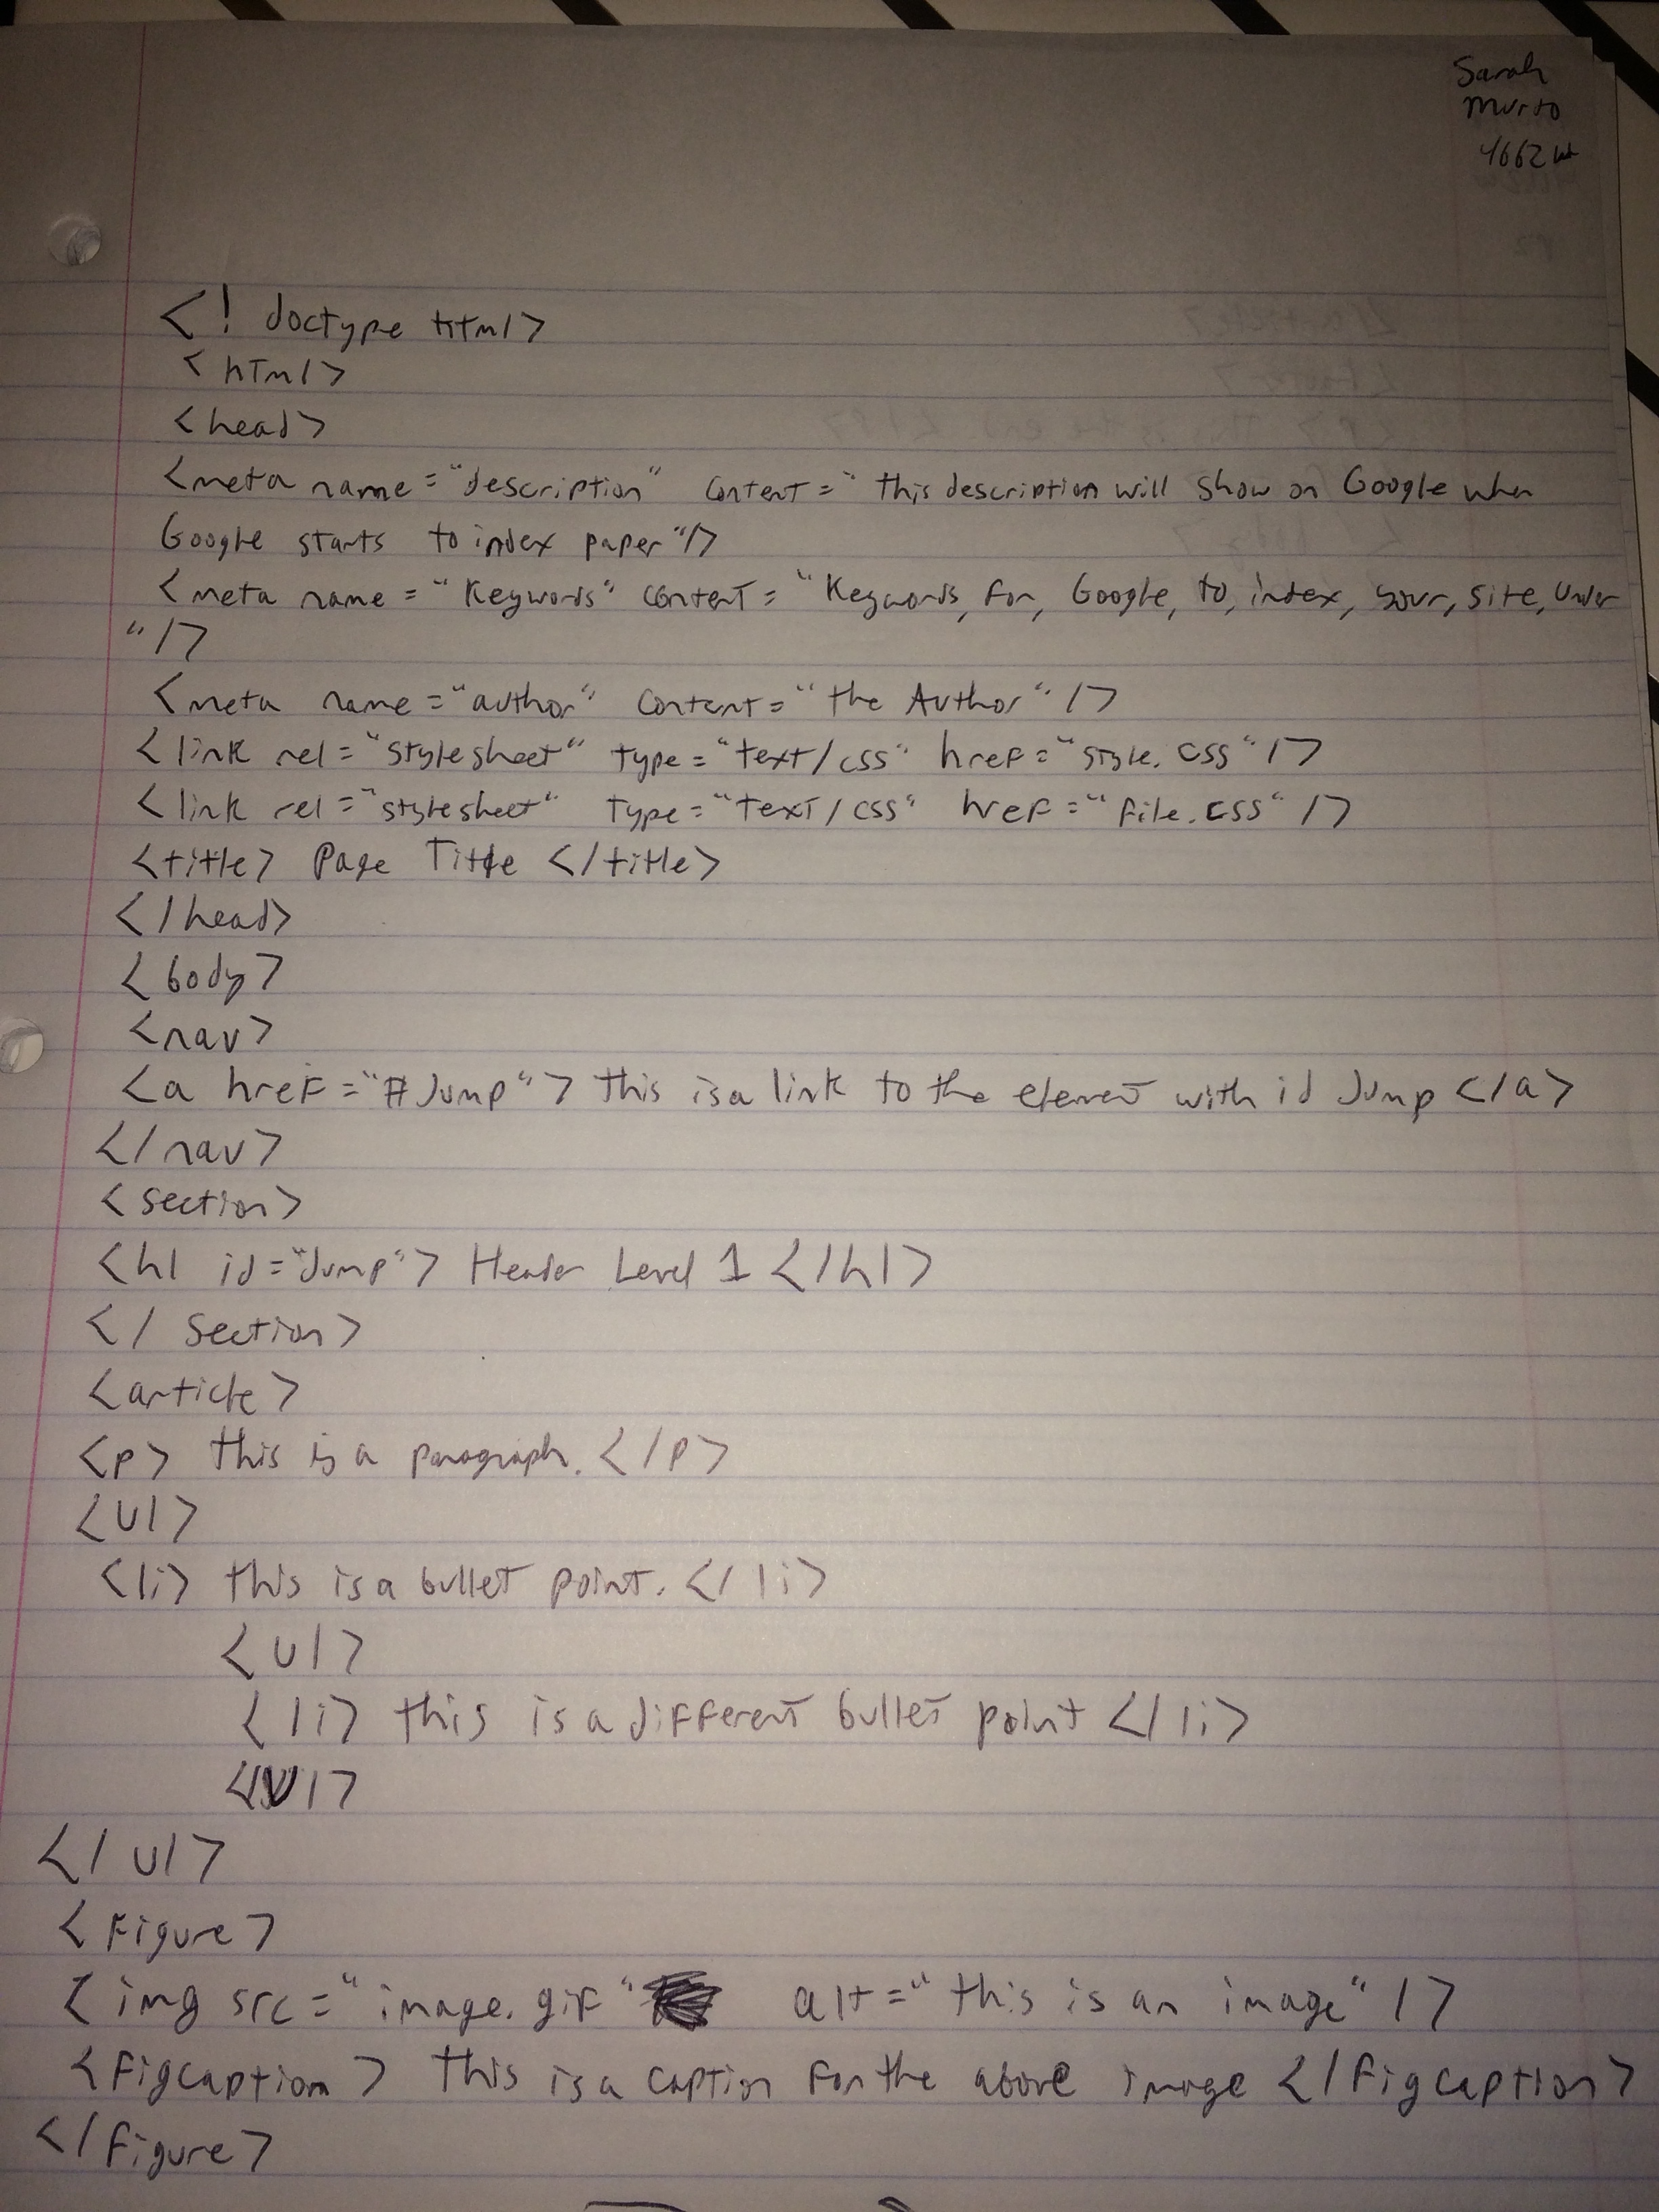 Sarah
Murto
<! doctype html>
<html>
<head>
<meta name="description" content="this description will show on Google when
Google starts to index paper"/>
<meta name="Keywords" content="Keywords, for, Google, to, index, your, site, under
"/>
<meta name="author" content="the Author"/>
<link rel="stylesheet" type="text/css" href="style.css"/>
<link rel="stylesheet" type="text/css" href="file.css"/>
<title> Page Title </title>
</head>
<body>
<nav>
<a href="#Jump"> this is a link to the element with id Jump </a>
</nav>
<section>
<h1 id="Jump"> Header Level 1 </h1>
</section>
<article>
<p> this is a paragraph. </p>
<ul>
<li> this is a bullet point. </li>
<ul>
<li> this is a different bullet point </li>
</ul>
</ul>
<figure>
<img src="image.gif" alt="this is an image"/>
<figcaption> this is a caption for the above image </figcaption>
</figure>